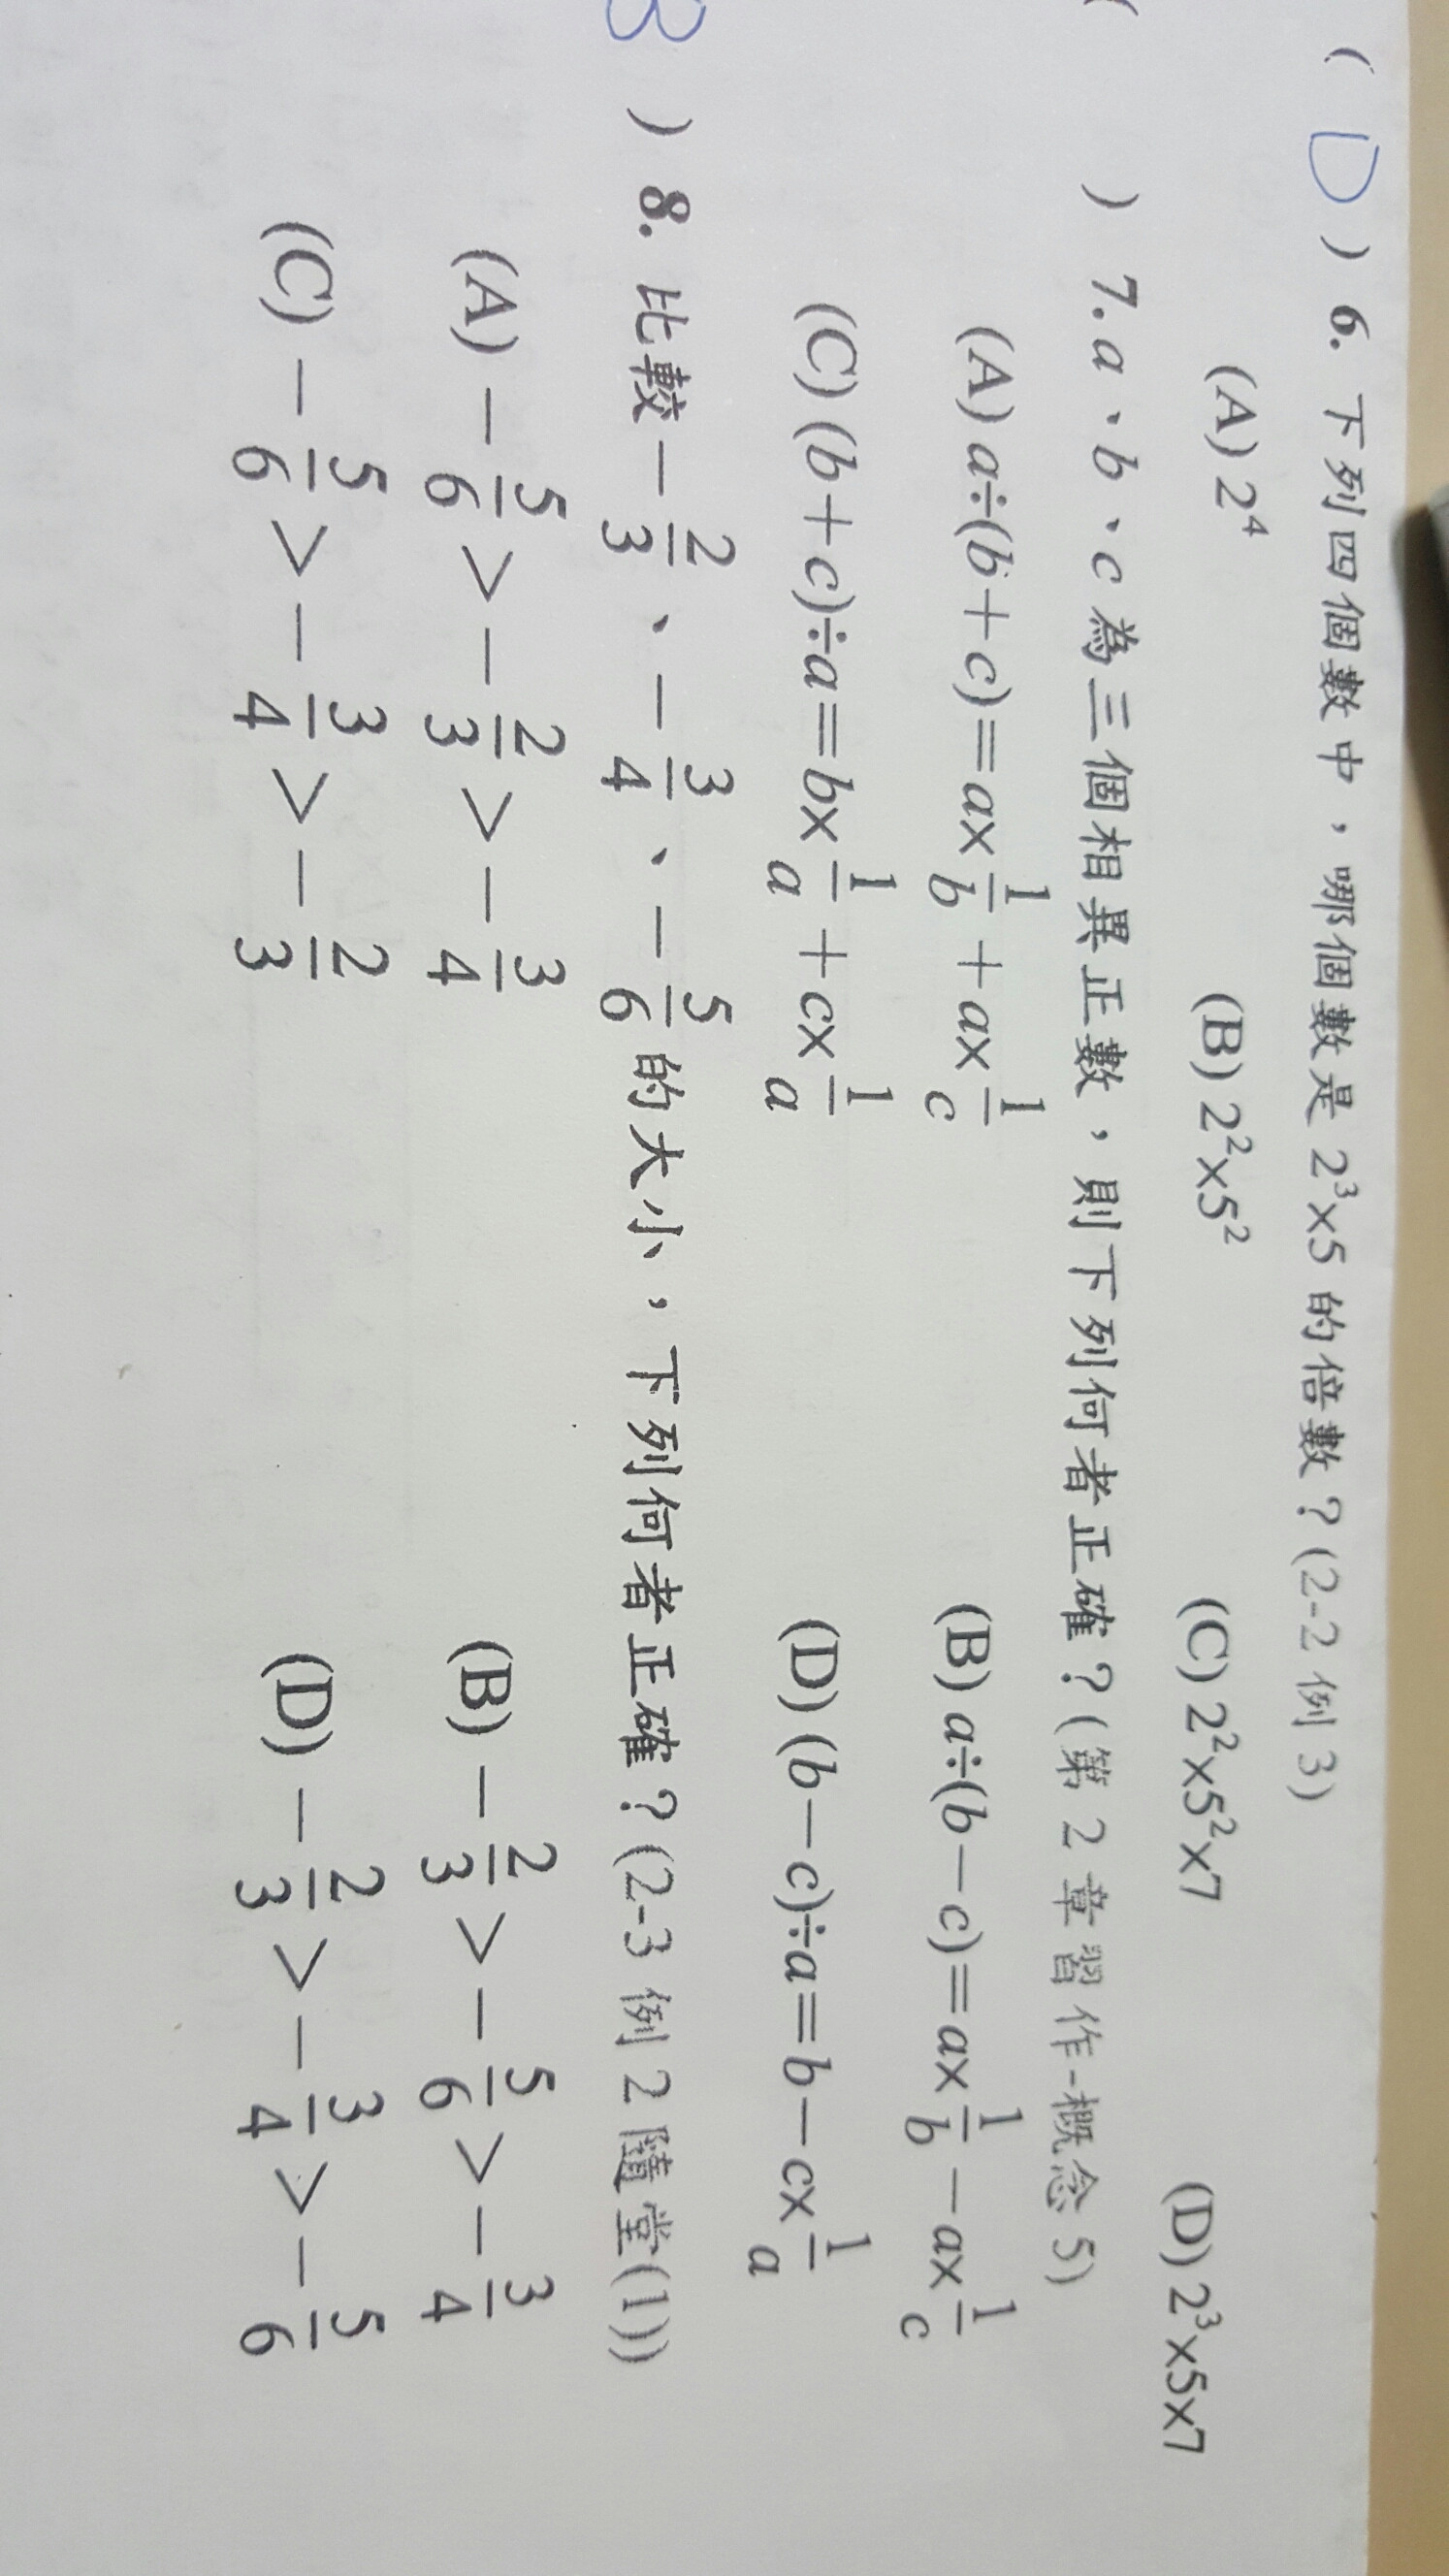 ( D ) 6. 下列四個數中，哪個數是 2³×5 的倍數？(2-2 例 3)
(A) 2⁴ (B) 2²×5² (C) 2²×5²×7 (D) 2³×5×7
( ) 7. a、b、c 為三個相異正數，則下列何者正確？(第 2 章習作-概念 5)
(A) a÷(b+c)=a×1/b+a×1/c (B) a÷(b−c)=a×1/b−a×1/c
(C) (b+c)÷a=b×1/a+c×1/a (D) (b−c)÷a=b−c×1/a
B ) 8. 比較−2/3、−3/4、−5/6的大小，下列何者正確？(2-3 例 2 隨堂(1))
(A) −5/6>−2/3>−3/4 (B) −2/3>−5/6>−3/4
(C) −5/6>−3/4>−2/3 (D) −2/3>−3/4>−5/6